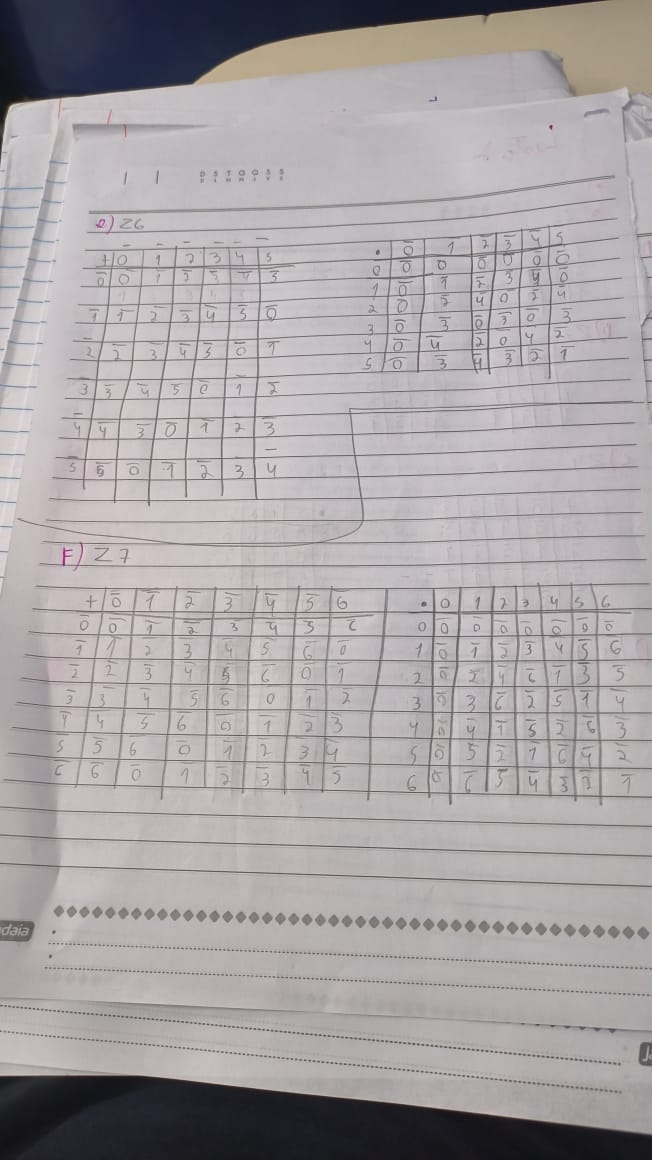 D S T Q Q S S
D L M M J V S
e) Z6
+ 0 1 2 3 4 5
0̅ 0̅ 1̅ 2̅ 3̅ 4̅ 5̅
1̅ 1̅ 2̅ 3̅ 4̅ 5̅ 0̅
2̅ 2̅ 3̅ 4̅ 5̅ 0̅ 1̅
3̅ 3̅ 4̅ 5̅ 0̅ 1̅ 2̅
4̅ 4̅ 3̅ 0̅ 1̅ 2̅ 3̅
5̅ 5̅ 0̅ 1̅ 2̅ 3̅ 4̅
• 0̅ 1 2̅ 3̅ 4̅ 5
0 0̅ 0̅ 0̅ 0̅ 0̅ 0̅
1 0̅ 1̅ 2̅ 3 4̅ 0̅
2 0̅ 2̅ 4̅ 0̅ 2̅ 4̅
3 0̅ 3̅ 0̅ 3̅ 0̅ 3̅
4 0̅ 4̅ 2̅ 0̅ 4̅ 2̅
5 0̅ 3̅ 4̅ 3̅ 2̅ 1̅
F) Z7
+ 0̅ 1̅ 2̅ 3̅ 4̅ 5̅ 6
0̅ 0̅ 1̅ 2̅ 3̅ 4̅ 5̅ 6̅
1̅ 1̅ 2̅ 3̅ 4̅ 5̅ 6̅ 0̅
2̅ 2̅ 3̅ 4̅ 5̅ 6̅ 0̅ 1̅
3̅ 3̅ 4̅ 5̅ 6̅ 0 1̅ 2̅
4̅ 4̅ 5̅ 6̅ 0̅ 1̅ 2̅ 3̅
5̅ 5̅ 6̅ 0̅ 1̅ 2̅ 3̅ 4̅
6̅ 6̅ 0̅ 1̅ 2̅ 3̅ 4̅ 5̅
• 0 1 2 3 4 5 6
0 0̅ 0̅ 0̅ 0̅ 0̅ 0̅ 0̅
1 0̅ 1̅ 2̅ 3̅ 4̅ 5̅ 6
2 0̅ 2̅ 4̅ 6̅ 1̅ 3̅ 5
3 0̅ 3 6̅ 2̅ 5̅ 1̅ 4̅
4 0̅ 4̅ 1̅ 5̅ 2̅ 6̅ 3̅
5 0̅ 5̅ 2̅ 1̅ 6̅ 4̅ 2̅
6 0̅ 6̅ 5̅ 4̅ 3̅ 2̅ 1̅
daia